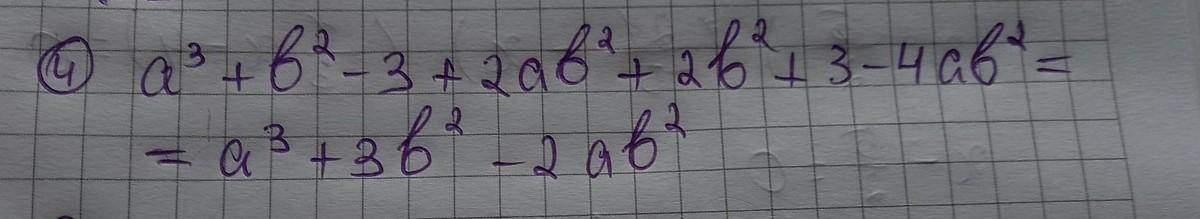 ④ a³ + b² - 3 + 2ab² + 2b² + 3 - 4ab² =
= a³ + 3b² - 2ab²